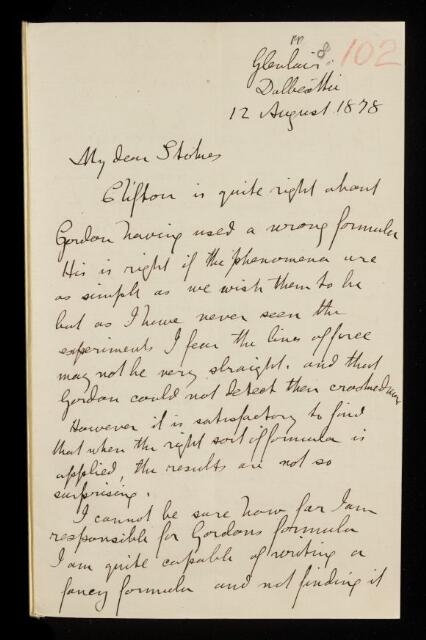 pp 8 102
Glenlair
Dalbeattie
12 August 1878
My dear Stokes
Clifton is quite right about
Gordon having used a wrong formula
His is right if the phenomena are
as simple as we wish them to be
but as I have never seen the
experiments I fear the lines of force
may not be very straight. and that
Gordon could not detect their crookedness
However it is satisfactory to find
that when the right sort of formula is
applied, the results are not so
surprising.
I cannot be sure how far I am
responsible for Gordons formula
I am quite capable of writing a
fancy formula and not finding it